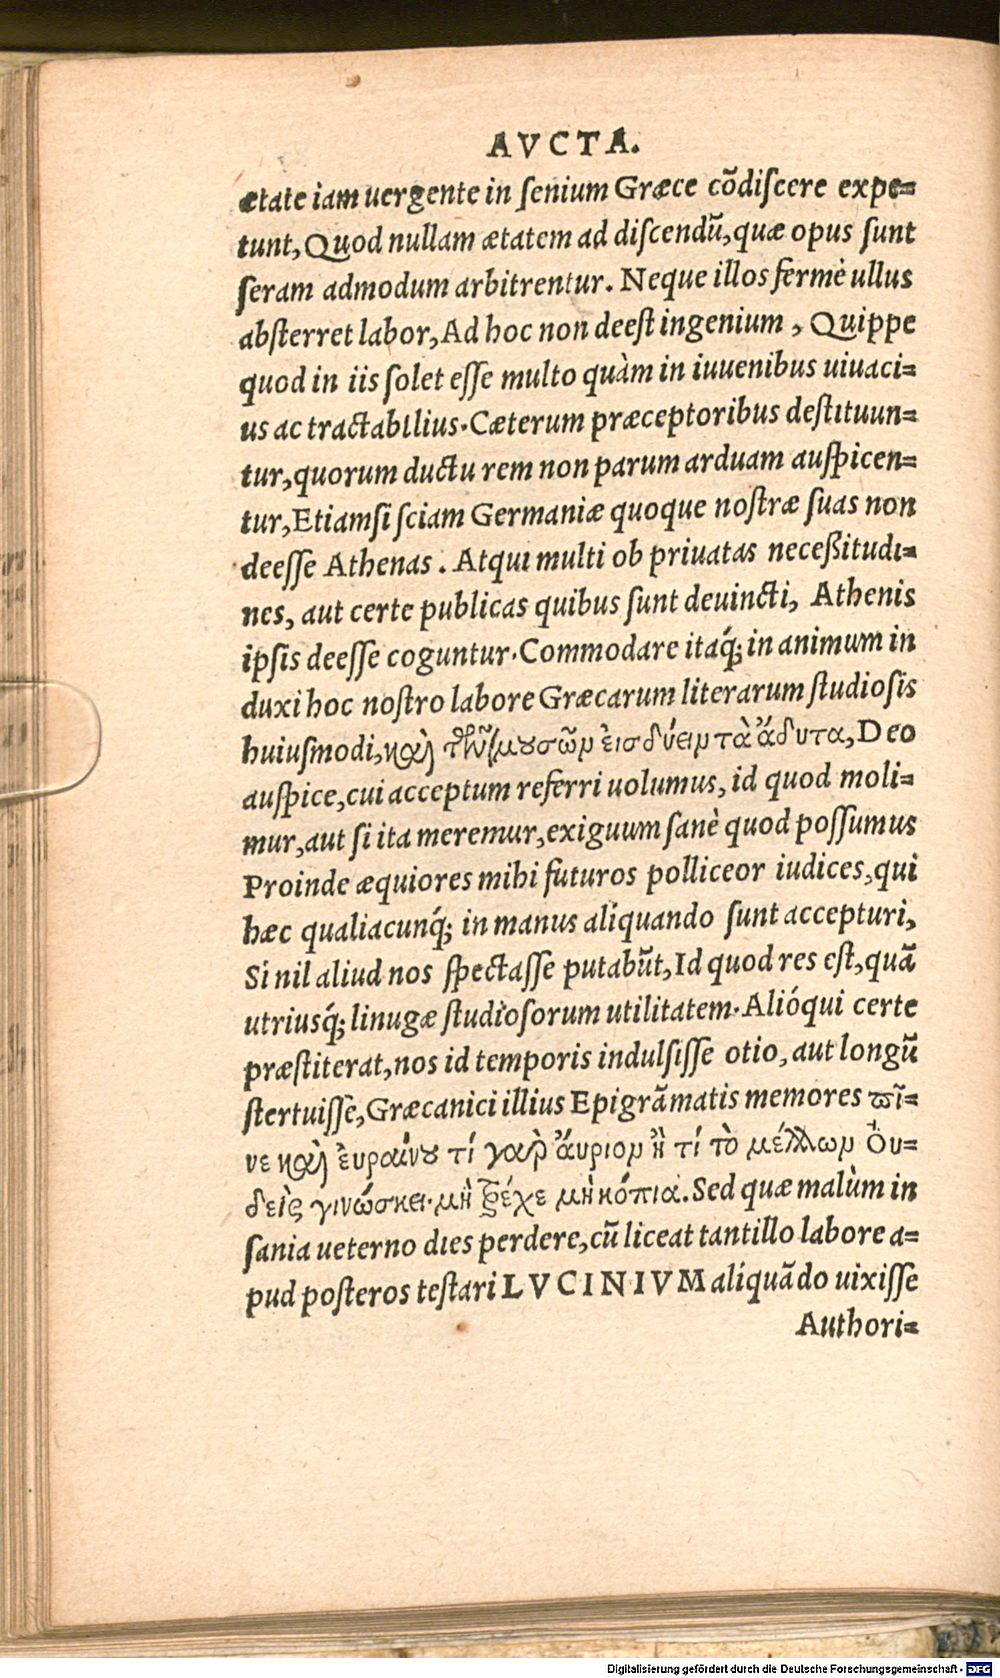 AVCTA.
ætate iam uergente in ſenium Græce cõdiſcere expe=
tunt, Quod nullam ætatem ad diſcendũ, quæ opus ſunt
ſeram admodum arbitrentur. Neque illos fermè ullus
abſterret labor, Ad hoc non deeſt ingenium, Quippe
quod in iis ſolet eſſe multo quàm in iuuenibus uiuaci=
us ac tractabilius. Cæterum præceptoribus deſtituun=
tur, quorum ductu rem non parum arduam auſpicen=
tur, Etiamſi ſciam Germaniæ quoque noſtræ ſuas non
deeſſe Athenas. Atqui multi ob priuatas neceßitudi=
nes, aut certe publicas quibus ſunt deuincti, Athenis
ipſis deeſſe coguntur. Commodare itaq́; in animum in
duxi hoc noſtro labore Græcarum literarum ſtudioſis
huiuſmodi, καὶ τῶν μουσῶν εισδύειν τὰ ἄδυτα, Deo
auſpice, cui acceptum referri uolumus, id quod moli=
mur, aut ſi ita meremur, exiguum ſanè quod poſſumus
Proinde æquiores mihi futuros polliceor iudices, qui
hæc qualiacunq́; in manus aliquando ſunt accepturi,
Si nil aliud nos ſpectaſſe putabũt, Id quod res eſt, quã
utriusq́; linugæ ſtudioſorum utilitatem. Alióqui certe
præſtiterat, nos id temporis indulſiſſe otio, aut longũ
ſtertuiſſe, Græcanici illius Epigrãmatis memores ϖῖ=
νε καὶ ἐυραίνου τί γαρ ἄυριον ἢ τί τὸ μέλλων Ὀυ=
δεὶς γινώσκει. μὴ τρέχε μὴ κόπια. Sed quæ malùm in
ſania ueterno dies perdere, cũ liceat tantillo labore a=
pud poſteros teſtari LVCINIVM aliquãdo uixiſſe
Authori=
Digitalisierung gefördert durch die Deutsche Forschungsgemeinschaft - DFG